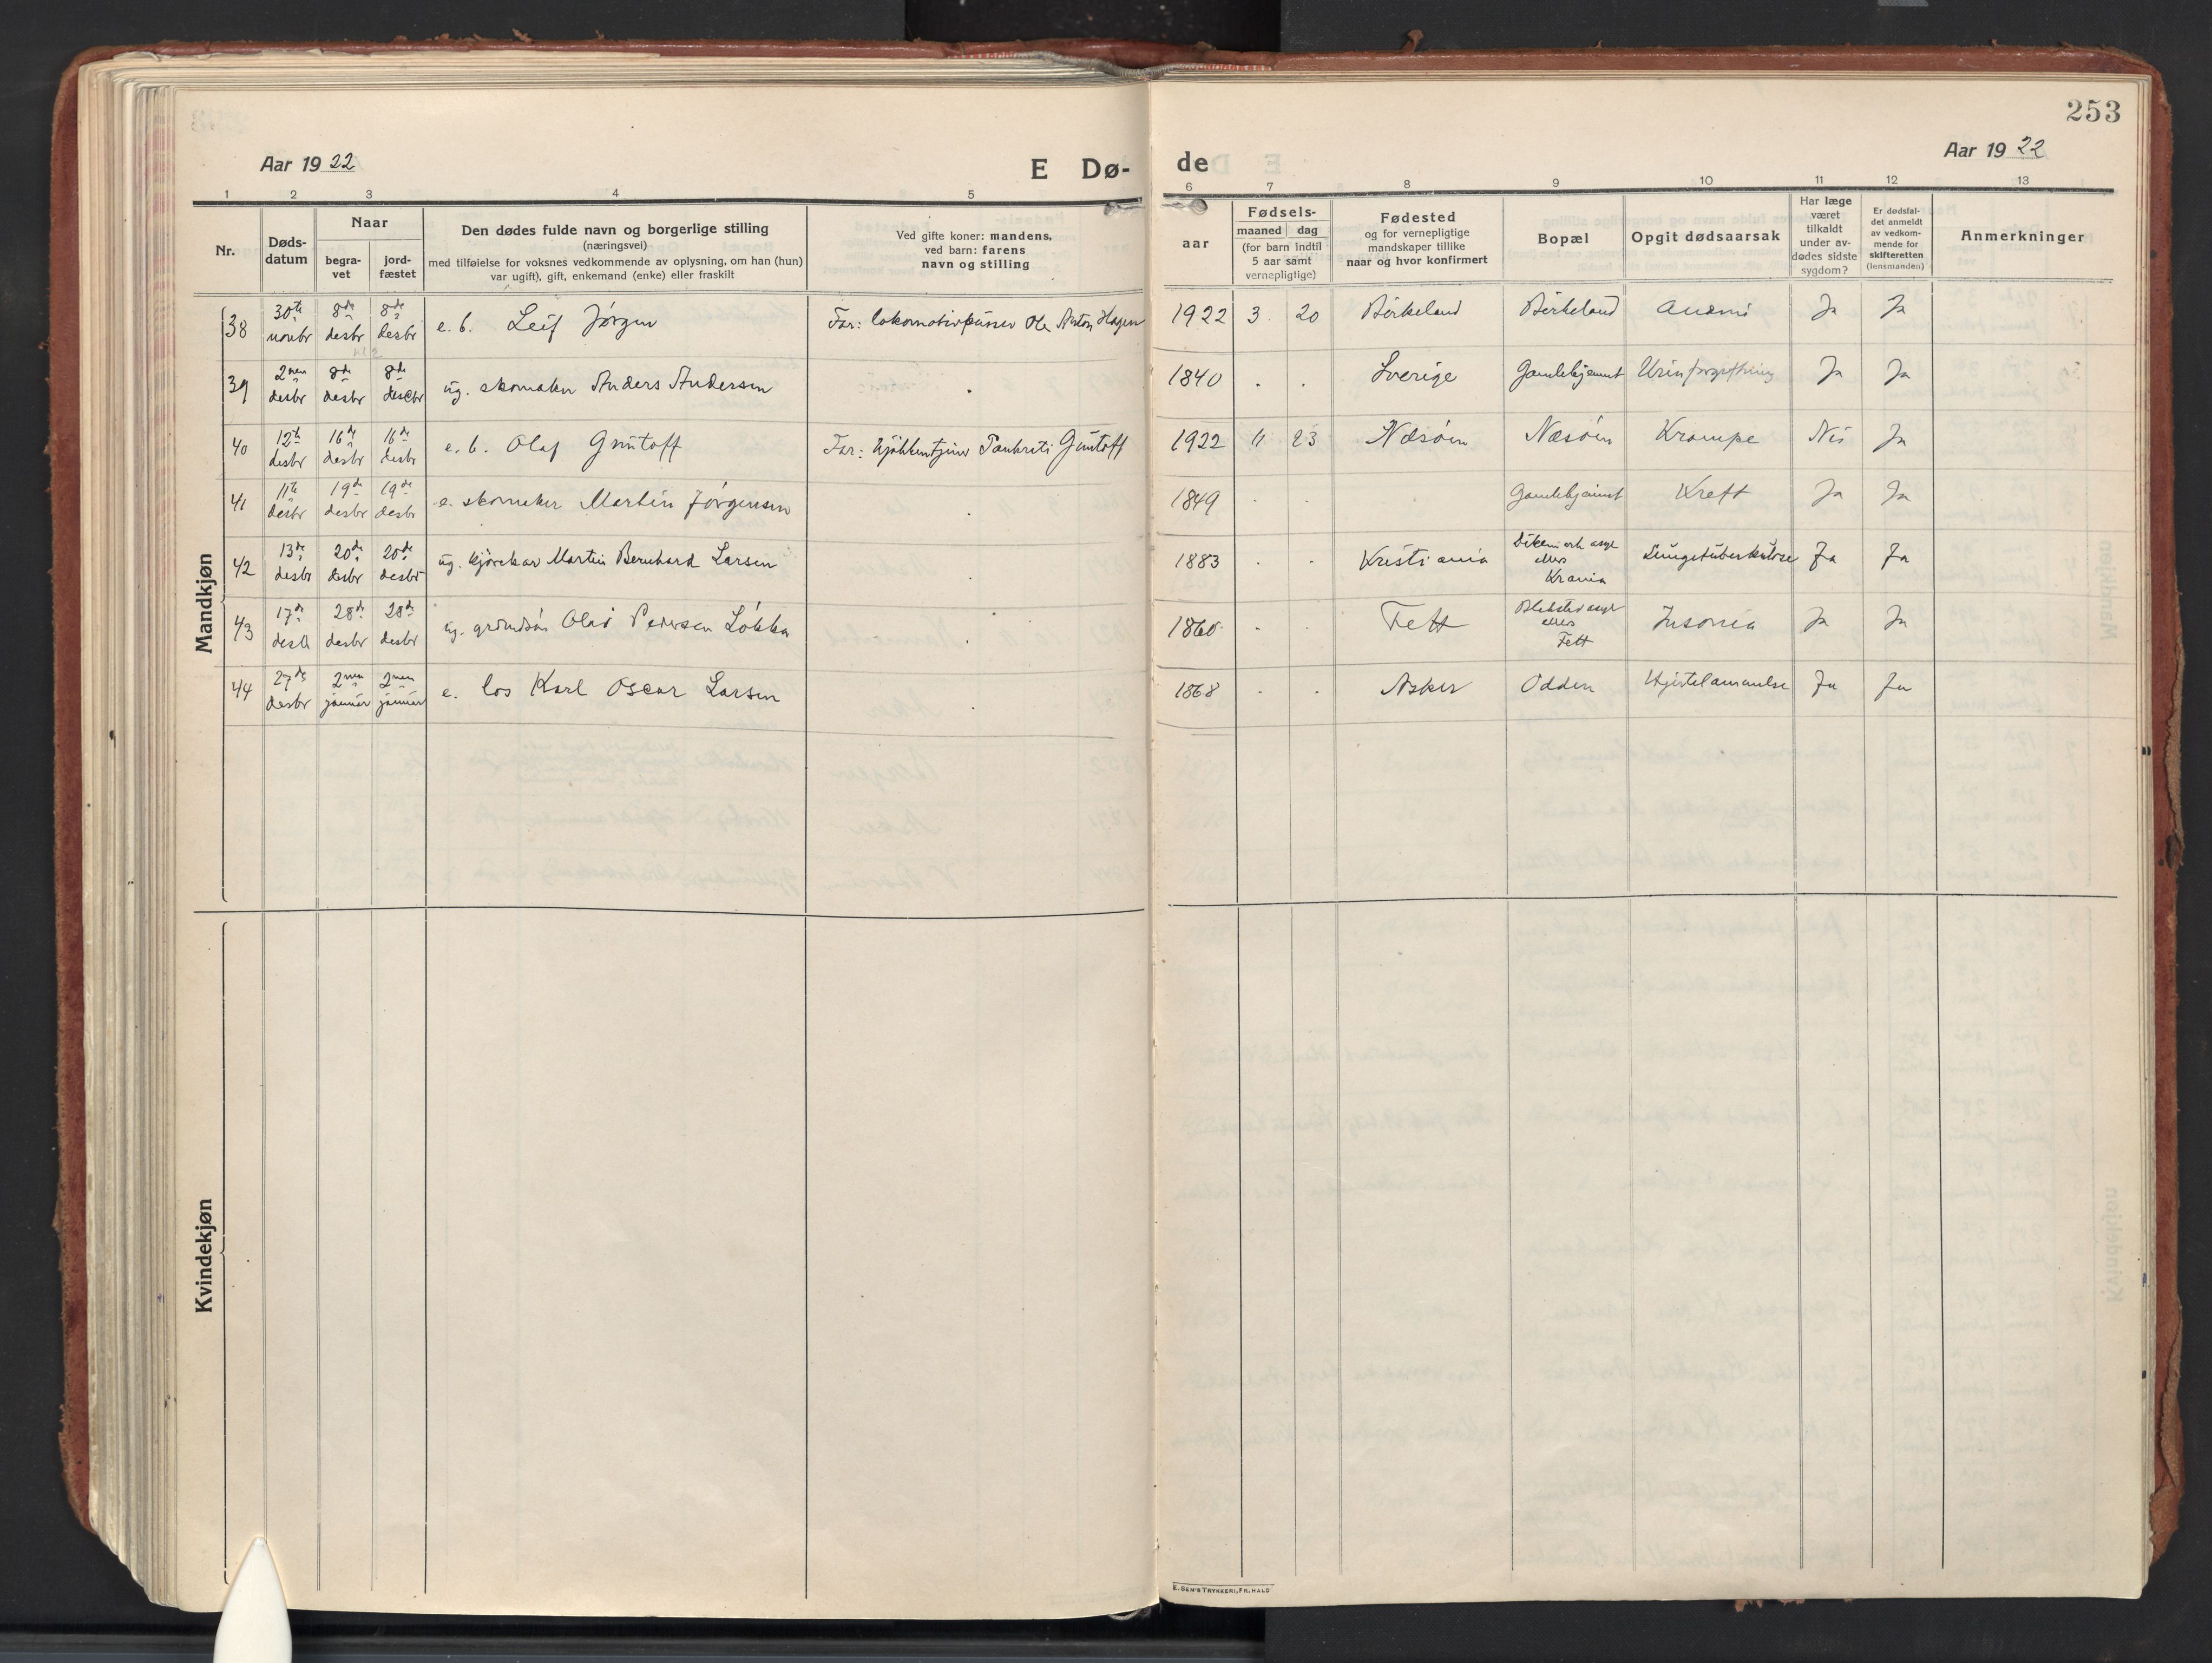 253
Aar 1922
E Dø-
de
Aar 1922
1 2 3 4 5 6 7 8 9 10 11 12 13
Nr.
Døds-
datum
Naar
begra-
vet
jord-
fæstet
Den dødes fulde navn og borgerlige stilling
(næringsvei)
med tilføielse for voksnes vedkommende av oplysning, om han (hun)
var ugift), gift, enkemand (enke) eller fraskilt
Ved gifte koner: mandens,
ved barn: farens
navn og stilling
aar
Fødsels-
maaned dag
(for barn indtil
5 aar samt
vernepligtige)
Fødested
og for vernepligtige
mandskaper tillike
naar og hvor konfirmert
Bopæl
Opgit dødsaarsak
Har læge
været
tilkaldt
under av-
dødes sidste
sygdom?
Er dødsfal-
det anmeldt
av vedkom-
mende for
skifteretten
(lensmanden)
Anmerkninger
Mandkjøn
38 30te novbr 8de desbr 8de desbr e. b. Leif Jørgen Far: lokomotivpusser Ole Anton Hagen 1922 3 20 Birkeland Birkeland Anæmi Ja Ja
39 2nen desbr 8de desbr 8de desebr ug. skomaker Anders Andersen 1840 Sverige Gamlehjemmet Urinforgiftning Ja Ja
40 12te desbr 16de desbr 16de desbr e. b. Olaf Guutoff Far: kjøkkentjener Pankrati Guutoff 1922 11 23 Nesøen Nesøen Krampe Nei Ja
41 11te desbr 19de desbr 19de desbr e. skomaker Martin Jørgensen 1849 Gamlehjemmet Kreft Ja Ja
42 13de desbr 20de desbr 20de desbr ug. kjørekar Martin Bernhard Larsen 1883 Kristiania Dikemark asyl ellers Krania Lungetuberkulose Ja Ja
43 17de desbr 28de desbr 28de desbr ug. grdmdsøn Olai Pedersen Løkka 1860 Fett Blakstad asyl ellers Fett Insonia Ja Ja
44 27de desbr 2nen januar 2nen januar e. los Karl Oscar Larsen 1868 Asker Odden Hjertelammelse Ja Ja
Kvindekjøn
E. SEM'S TRYKKERI, FR.HALD